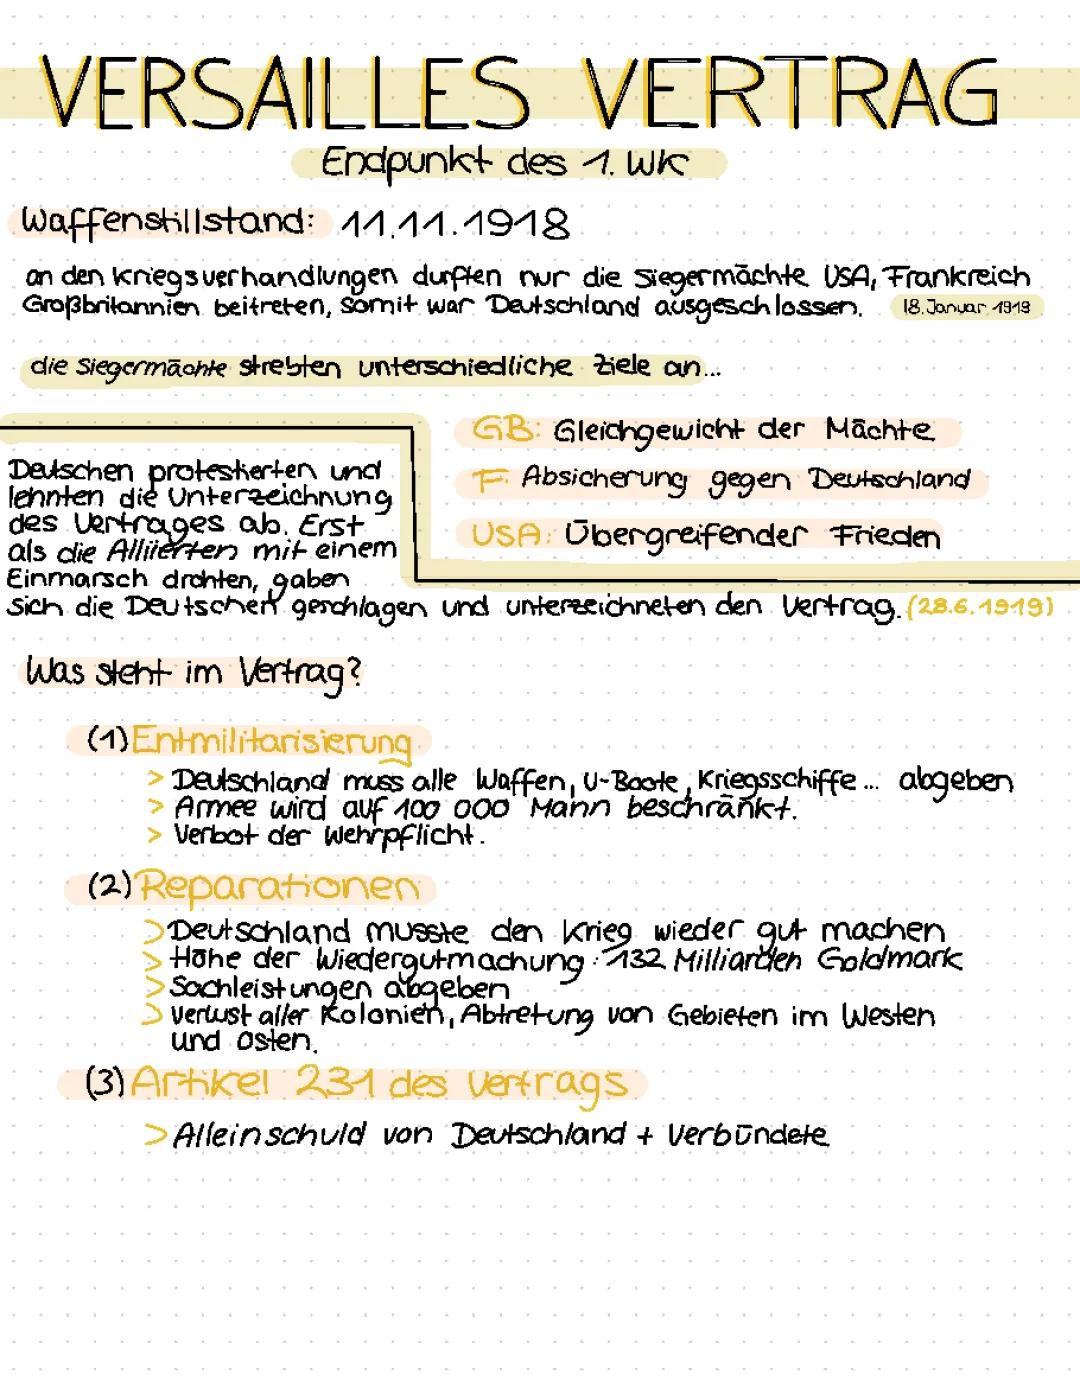 VERSAILLES VERTRAG
Endpunkt des 1. WK
Waffenstillstand: 11.11.1918
an den Kriegsverhandlungen durften nur die Siegermächte USA, Frankreich
Großbritannien beitreten, somit war Deutschland ausgeschlossen. 18. Januar 1919
die Siegermächte strebten unterschiedliche Ziele an...
GB: Gleichgewicht der Mächte
F: Absicherung gegen Deutschland
USA: Übergreifender Frieden
Deutschen protestierten und
lehnten die Unterzeichnung
des Vertrages ab. Erst
als die Alliierten mit einem
Einmarsch drohten, gaben
sich die Deutschen geschlagen und unterzeichneten den Vertrag. (28.6.1919)
Was steht im Vertrag?
(1) Entmilitarisierung
> Deutschland muss alle Waffen, U-Boote, Kriegsschiffe... abgeben
> Armee wird auf 100 000 Mann beschränkt.
> Verbot der Wehrpflicht.
(2) Reparationen
> Deutschland musste den Krieg wieder gut machen
> Höhe der Wiedergutmachung: 132 Milliarden Goldmark
> Sachleistungen abgeben
> Verlust aller Kolonien, Abtretung von Gebieten im Westen
und Osten.
(3) Artikel 231 des Vertrags
> Alleinschuld von Deutschland + Verbündete